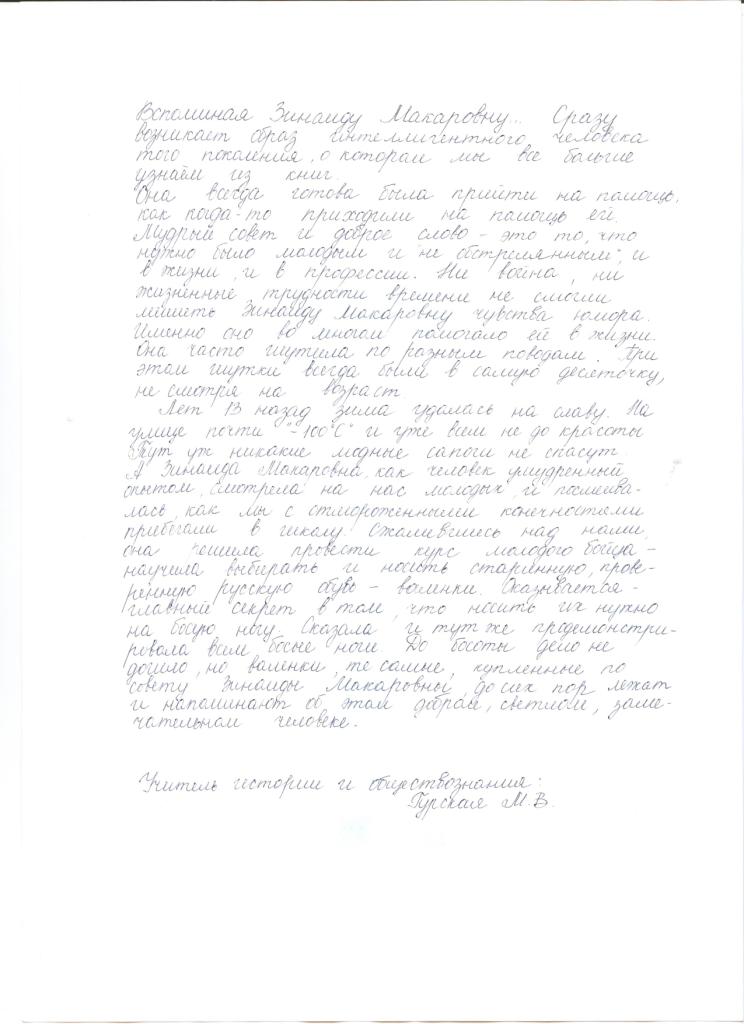 Вспоминая Зинаиду Макаровну... Сразу
возникает образ интеллигентного человека
того поколения, о котором мы все больше
узнаём из книг.
Она всегда готова была прийти на помощь,
как когда-то приходили на помощь ей.
Мудрый совет и доброе слово - это то, что
нужно было молодым и "не обстрелянным", и
в жизни, и в профессии. Ни война, ни
жизненные трудности времени не смогли
лишить Зинаиду Макаровну чувства юмора.
Именно оно во многом помогало ей в жизни.
Она часто шутила по разным поводам. При
этом шутки всегда были в самую десяточку,
не смотря на возраст
Лет 13 назад зима удалась на славу. На
улице почти "-100°С" и уже всем не до красоты
Тут уж никакие модные сапоги не спасут.
А Зинаида Макаровна, как человек умудренный
опытом, смотрела на нас молодых, и посмеива-
лась, как мы с отмороженными конечностями
прибегали в школу. Сжалившись над нами,
она решила провести курс молодого бойца -
научила выбирать и носить старинную, прове-
ренную русскую обувь - валенки. Оказывается -
главный секрет в том, что носить их нужно
на босую ногу. Сказала и тут же продемонстри-
ровала всем босые ноги. До босоты дело не
дошло, но валенки, те самые, купленные по
совету Зинаиды Макаровны, до сих пор лежат
и напоминают об этом добром, светлом, заме-
чательном человеке.
Учитель истории и обществознания:
Гурская М.В.